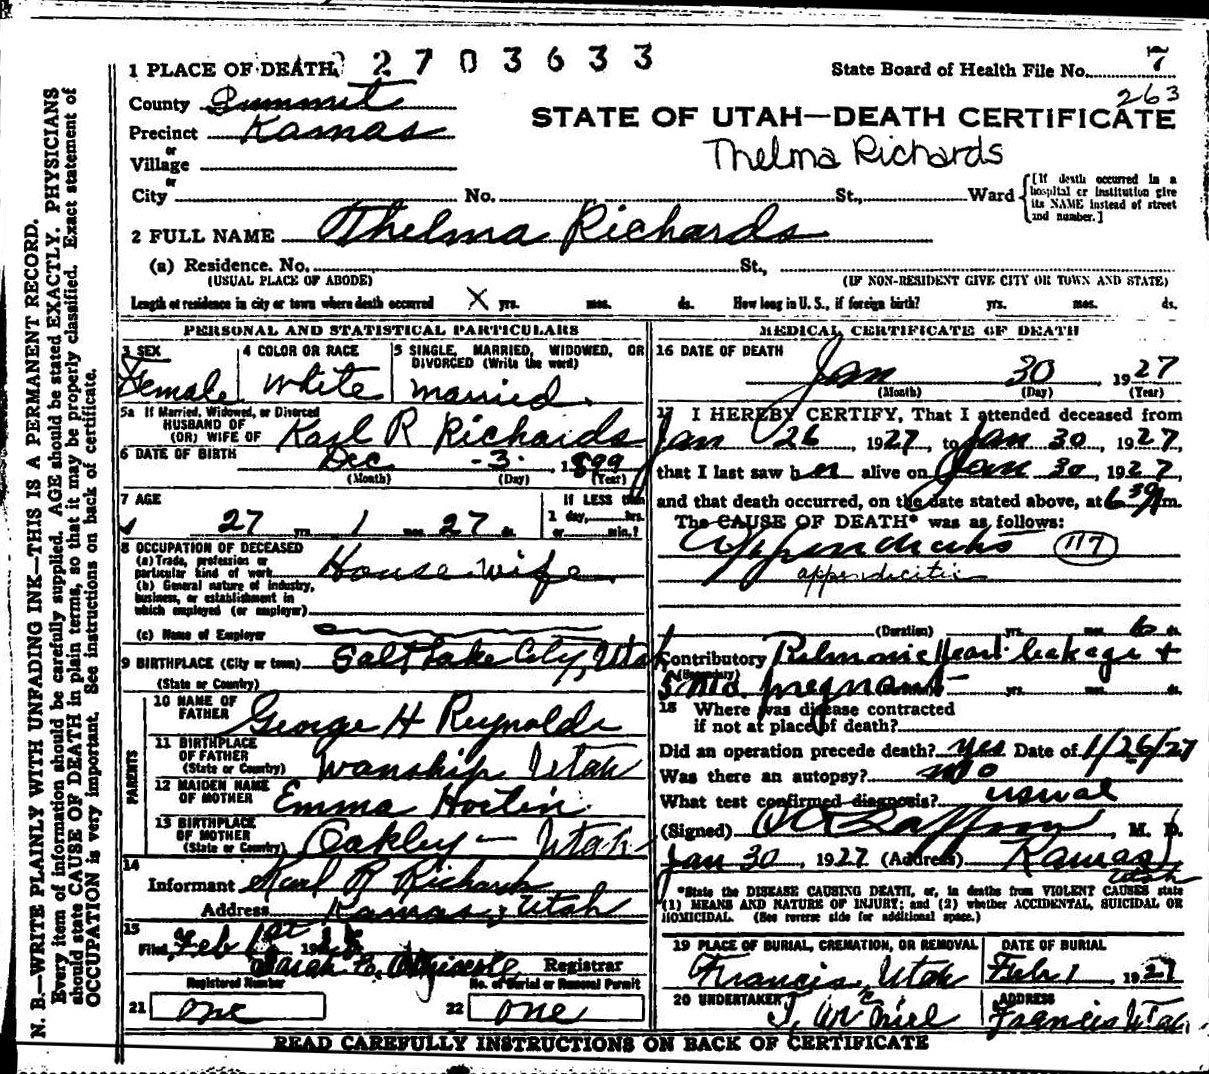 1 PLACE OF DEATH 2703633
State Board of Health File No. 7
263
County Summit
STATE OF UTAH—DEATH CERTIFICATE
Precinct Kamas
or
Thelma Richards
Village
or
City No. St., Ward [If death occurred in a hospital or institution give its NAME instead of street and number.]
2 FULL NAME Thelma Richards
(a) Residence. No. St.,
(USUAL PLACE OF ABODE) (IF NON-RESIDENT GIVE CITY OR TOWN AND STATE)
Length of residence in city or town where death occurred X yrs. mos. ds. How long in U. S., if foreign birth? yrs. mos. ds.
PERSONAL AND STATISTICAL PARTICULARS
3 SEX Female
4 COLOR OR RACE White
5 SINGLE, MARRIED, WIDOWED, OR DIVORCED (Write the word) Married
5a If Married, Widowed, or Divorced
HUSBAND OF
(OR) WIFE OF Karl R Richards
6 DATE OF BIRTH Dec - 3 - , 1899
(Month) (Day) (Year)
7 AGE 27 yrs. 1 mos. 27 ds.
If LESS than 1 day, hrs. or min.?
8 OCCUPATION OF DECEASED
(a) Trade, profession or particular kind of work House wife
(b) General nature of industry, business, or establishment in which employed (or employer)
(c) Name of Employer
9 BIRTHPLACE (City or town) Salt Lake City, Utah
(State or Country)
PARENTS
10 NAME OF FATHER George H Reynolds
11 BIRTHPLACE OF FATHER (State or Country) Wanship Utah
12 MAIDEN NAME OF MOTHER Emma Hortin
13 BIRTHPLACE OF MOTHER (State or Country) Oakley — Utah
14
Informant Karl R Richards
Address Kamas, Utah
15
Filed, Feb 1st 19
Sarah Registrar
Registered Number No. of Burial or Removal Permit
21 One 22 One
MEDICAL CERTIFICATE OF DEATH
16 DATE OF DEATH
Jan 30 , 1927
(Month) (Day) (Year)
17 I HEREBY CERTIFY, That I attended deceased from
Jan 26 , 1927, to Jan 30, 1927,
that I last saw her alive on Jan 30, 1927,
and that death occurred, on the date stated above, at 6 30 m.
The CAUSE OF DEATH* was as follows:
Appendicitis 117
appendicitis
(Duration) yrs. mos. 6 ds.
Contributory Pulmonic Heart leakage +
(Secondary)
5 mo. pregnant yrs. mos. ds.
18 Where was disease contracted
if not at place of death?
Did an operation precede death? yes Date of 1/26/27
Was there an autopsy? no
What test confirmed diagnosis? usual
(Signed) , M. D.
Jan 30 , 1927 (Address) Kamas
Utah
*State the DISEASE CAUSING DEATH, or, in deaths from VIOLENT CAUSES state
(1) MEANS AND NATURE OF INJURY; and (2) whether ACCIDENTAL, SUICIDAL OR
HOMICIDAL. (See reverse side for additional space.)
19 PLACE OF BURIAL, CREMATION, OR REMOVAL DATE OF BURIAL
Francis, Utah Feb 1 1927
20 UNDERTAKER ADDRESS
Francis Utah
READ CAREFULLY INSTRUCTIONS ON BACK OF CERTIFICATE
N. B.—WRITE PLAINLY WITH UNFADING INK—THIS IS A PERMANENT RECORD.
Every item of information should be carefully supplied. AGE should be stated EXACTLY. PHYSICIANS
should state CAUSE OF DEATH in plain terms, so that it may be properly classified. Exact statement of
OCCUPATION is very important. See instructions on back of certificate.